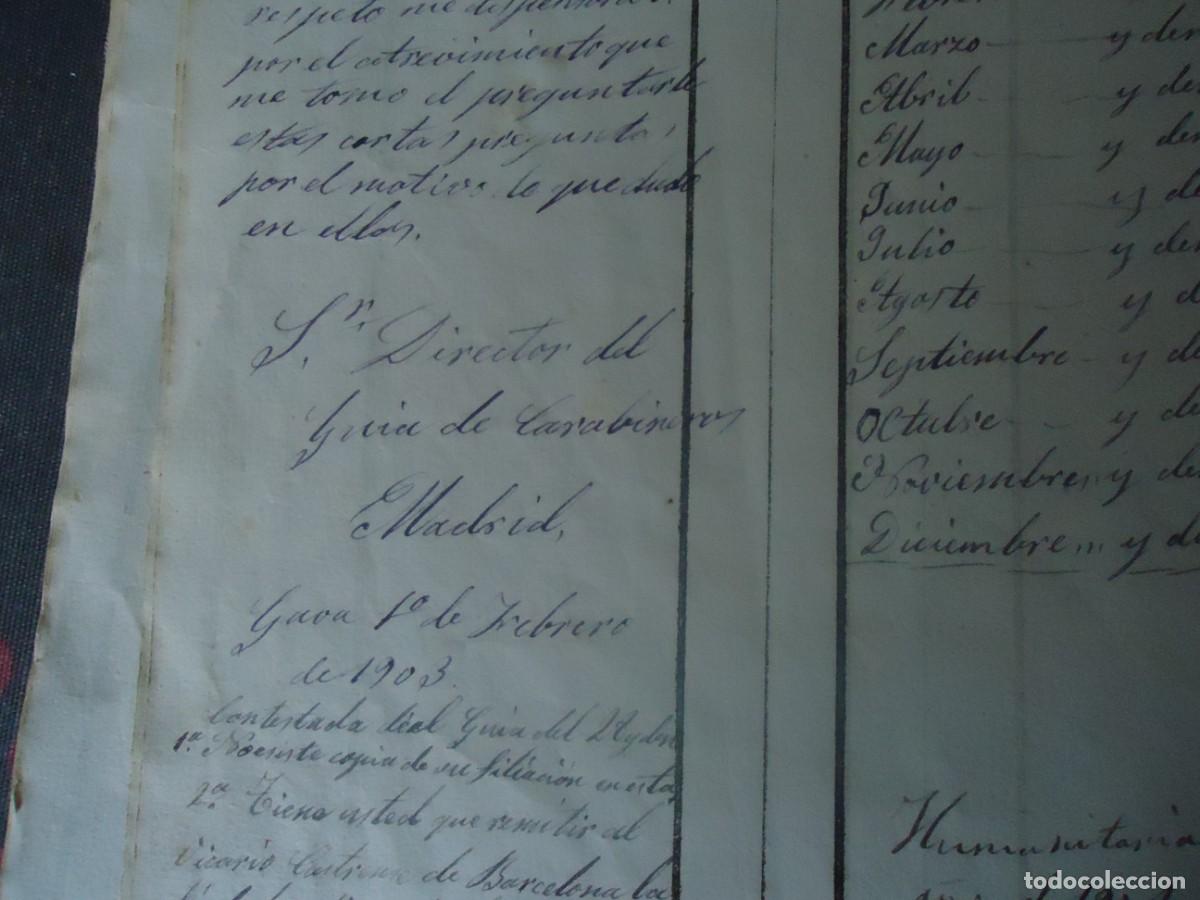 respeto me dispensará
por el atrevimiento que
me tomo el preguntarle
estas cortas preguntas
por el motivo lo que dudo
en ellas.
Sr. Director del
Guia de Carabineros
Madrid,
Gava 1º de Febrero
de 1903.
Contestada del Guia del
1ª Noexiste copia de su filiación en esta
2ª Tiene usted que remitir al
Vicario Castrense de Barcelona la
Marzo y de
Abril y de
Mayo y de
Junio y de
Julio y de
Agosto y d
Septiembre y d
Octubre y de
Noviembre y de
Diciembre y d
Humanitaria
todocoleccion